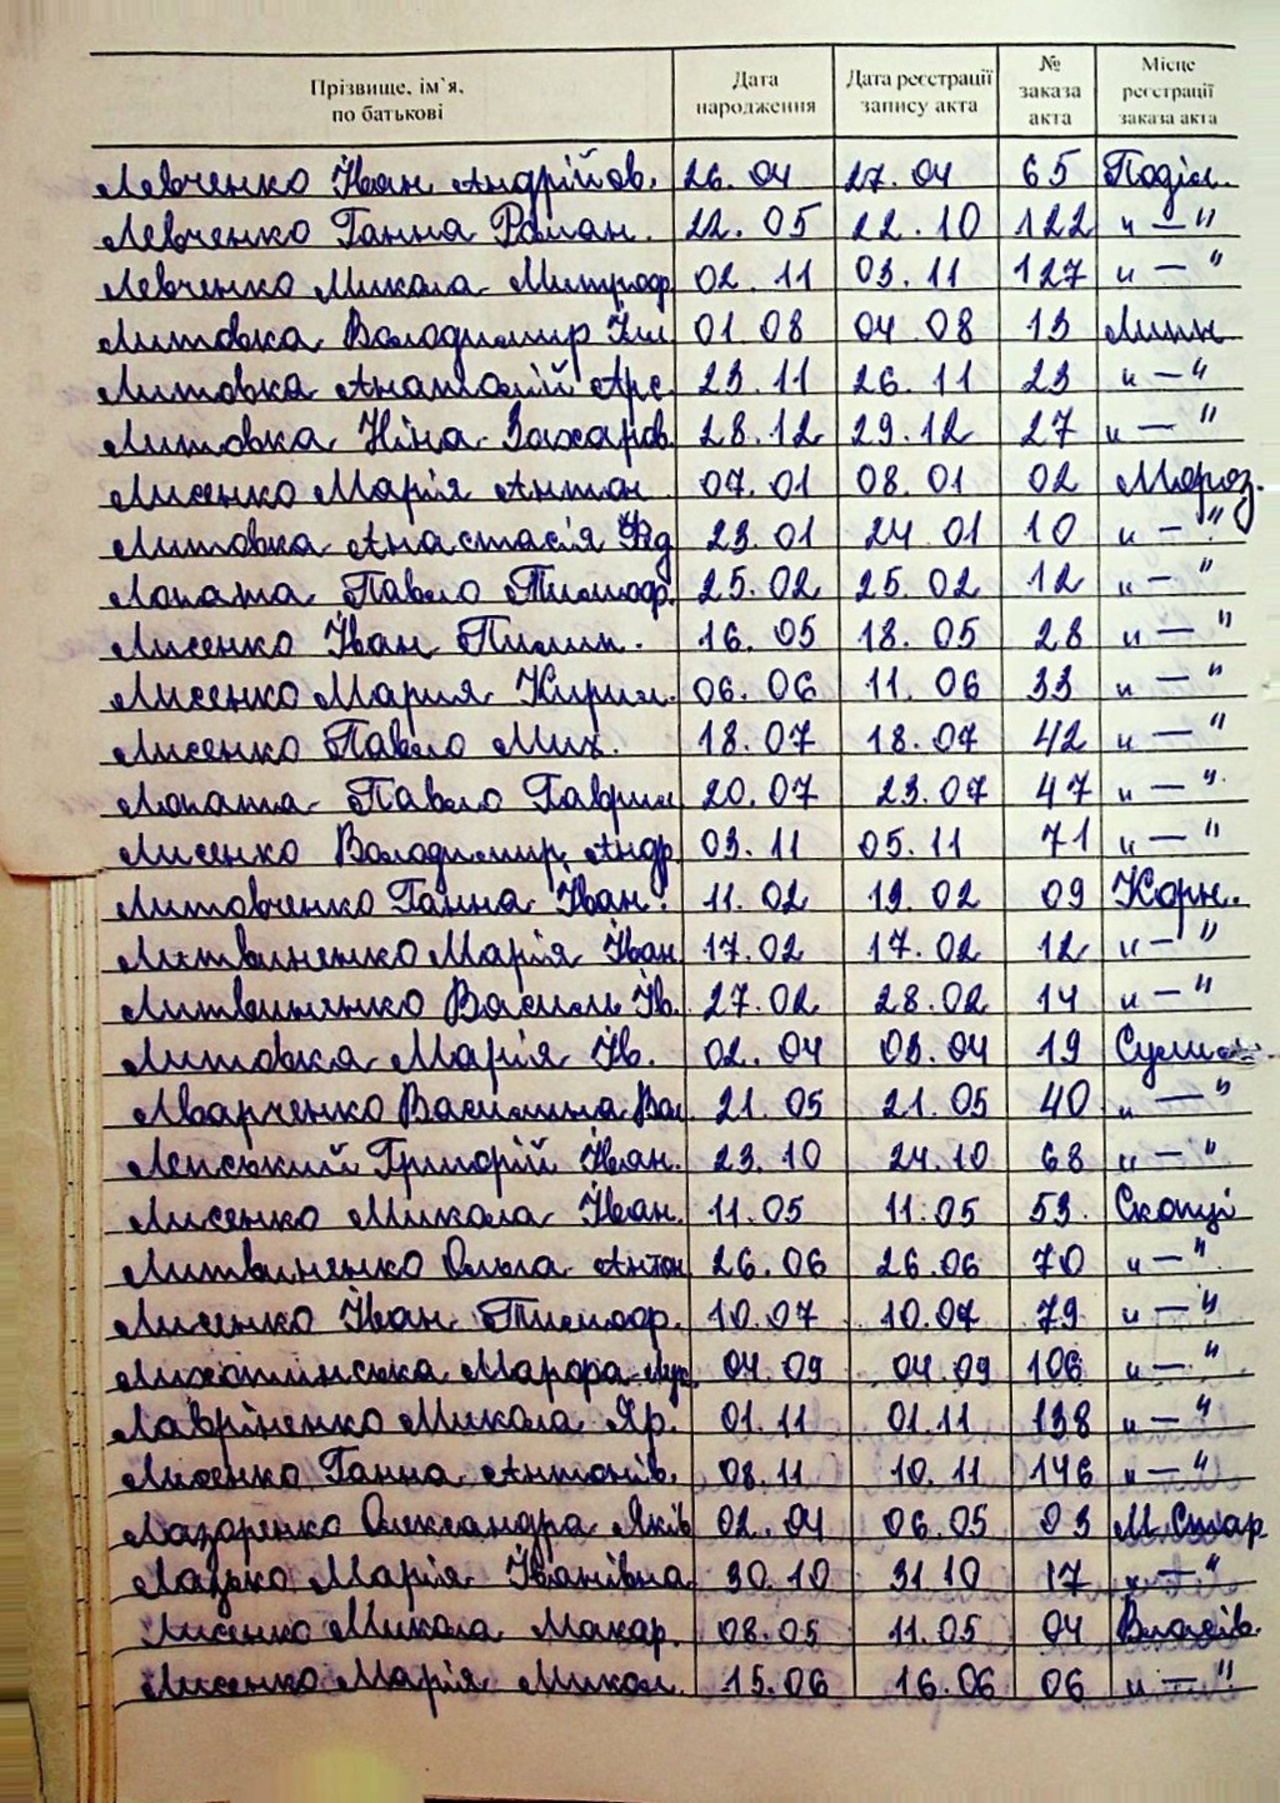 Прізвище, ім`я, по батькові Дата народження Дата реєстрації запису акта № заказа акта Місце реєстрації заказа акта
Левченко Іван Андрійов. 26.04 27.04 65 Поділ.
Левченко Ганна Роман. 22.05 22.10 122 и — "
Левченко Микола Митроф. 02.11 03.11 127 и — "
Литовка Володимир 01 08 04 08 13 Липн
Литовка Анатолій Арс. 23.11 26.11 23 и — "
Литовка Ніна Захаров. 28.12 29.12 27 и — "
Лисенко Марія Антон 07.01 08.01 02 Мороз.
Литовка Анастасія 23.01 24 01 10 и — "
Лопата Павло Тимоф. 25.02 25.02 12 и — "
Лисенко Іван Пилип. 16.05 18.05 28 и — "
Лисенко Мария Кирил. 06.06 11.06 33 и — "
Лисенко Павло Мих. 18.07 18.07 42 и — "
Лопата Павло Гаврил 20.07 23.07 47 и — "
Лисенко Володимир Андр. 03.11 05.11 71 и — "
Литовченко Ганна Іван. 11.02 19.02 09 Корн.
Литвиненко Марія Іван 17.02 17.02 12 и — "
Литвиненко Василь Ів. 27.02 28.02 14 и — "
Литовка Марія Ів. 02.04 03.04 19
Лварченко Василина Вас. 21.05 21.05 40 и — "
Лепський Григорій Іван. 23.10 24.10 68 и — "
Лисенко Микола Іван. 11.05 11.05 53. Скопці
Литвиненко Ольга Антон 26.06 26.06 70 и — "
Лисенко Іван Тимоф. 10.07 10.07 79 и — "
04.09 04.09 106 и — "
Лавріненко Микола Яр. 01.11 01.11 138 и — "
Лисенко Ганна Антонів. 08.11 10.11 146 и — "
Лазоренко Олександра Яків 02.04 06.05 03 М.Стар
Лазько Марія Іванівна 30.10 31.10 17 и — "
Лисенко Микола Макар. 08.05 11.05 04 Власів.
Лисенко Марія Микол. 15.06 16.06 06 и — "